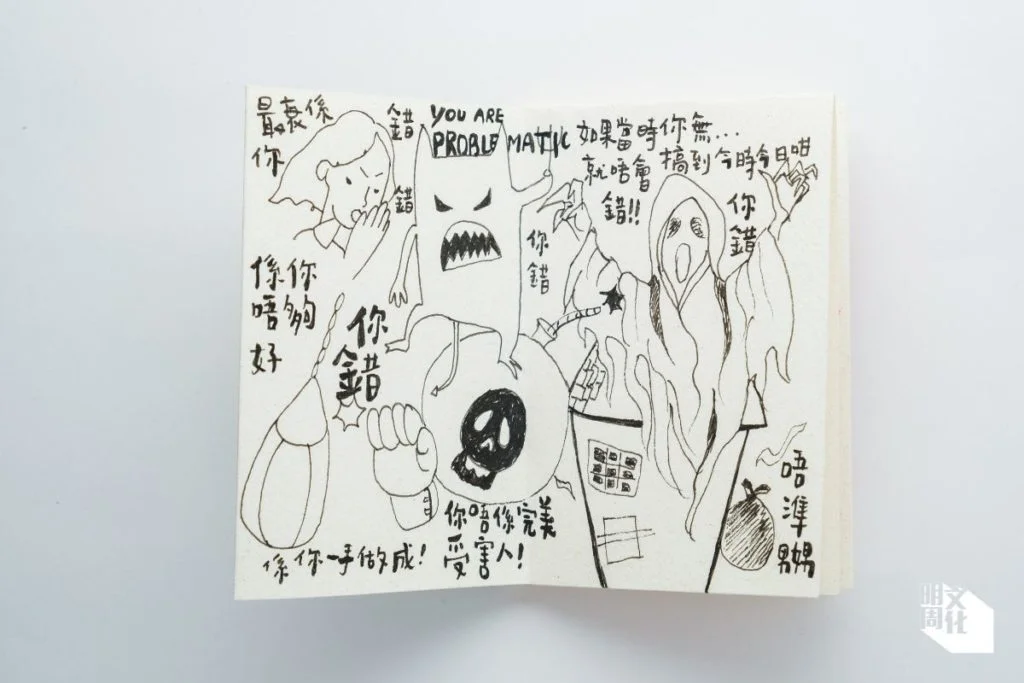 最衰係
你
錯
錯
係你
唔夠
好
你
錯
YOU ARE
PROBLEMATIC
你
錯
如果當時你無...
就唔會搞到今時今日咁
錯!!
你
錯
係你一手做成!
你唔係完美
受害人!
唔
準
嬲
明周
文化